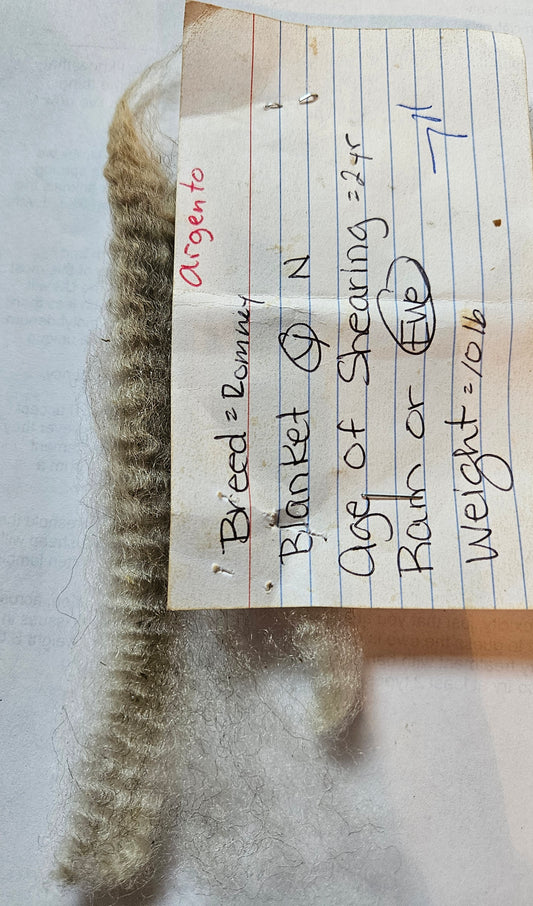 argento
Breed = Romney
Blanket Y N
Age of Shearing = 2yr
Ram or Ewe
Weight = 10 lb